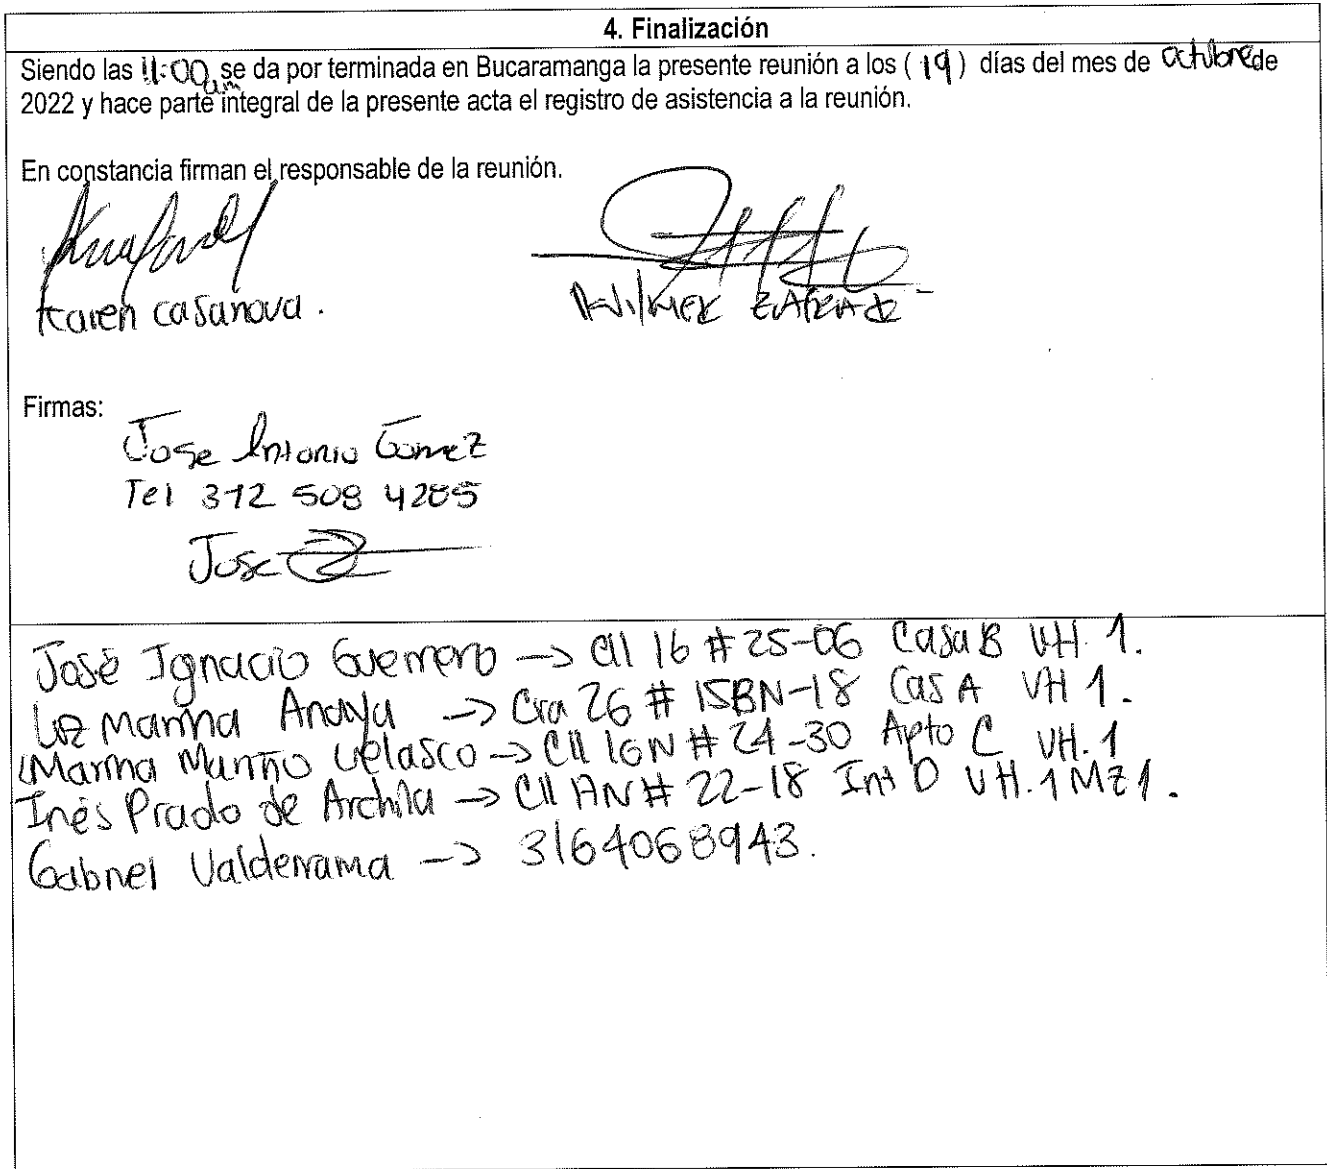 4. Finalización
Siendo las 11:00 am se da por terminada en Bucaramanga la presente reunión a los ( 19 ) días del mes de octubre de
2022 y hace parte integral de la presente acta el registro de asistencia a la reunión.
En constancia firman el responsable de la reunión.
Karen casanova.
Firmas:
Jose Antonio Gomez
Tel 312 508 4285
Jose
José Ignacio Guerrero -> Cll 16 # 25-06 Casa B VH. 1.
Luz Marina Anaya -> Cra 26 # 15BN-18 Cas A VH 1.
Marina Velasco -> Cll 16N # 24-30 Apto C VH. 1
Inés Prado de Archila -> Cll # 22-18 Int D VH. 1 MZ 1.
Gabriel Valderrama -> 3164068943.